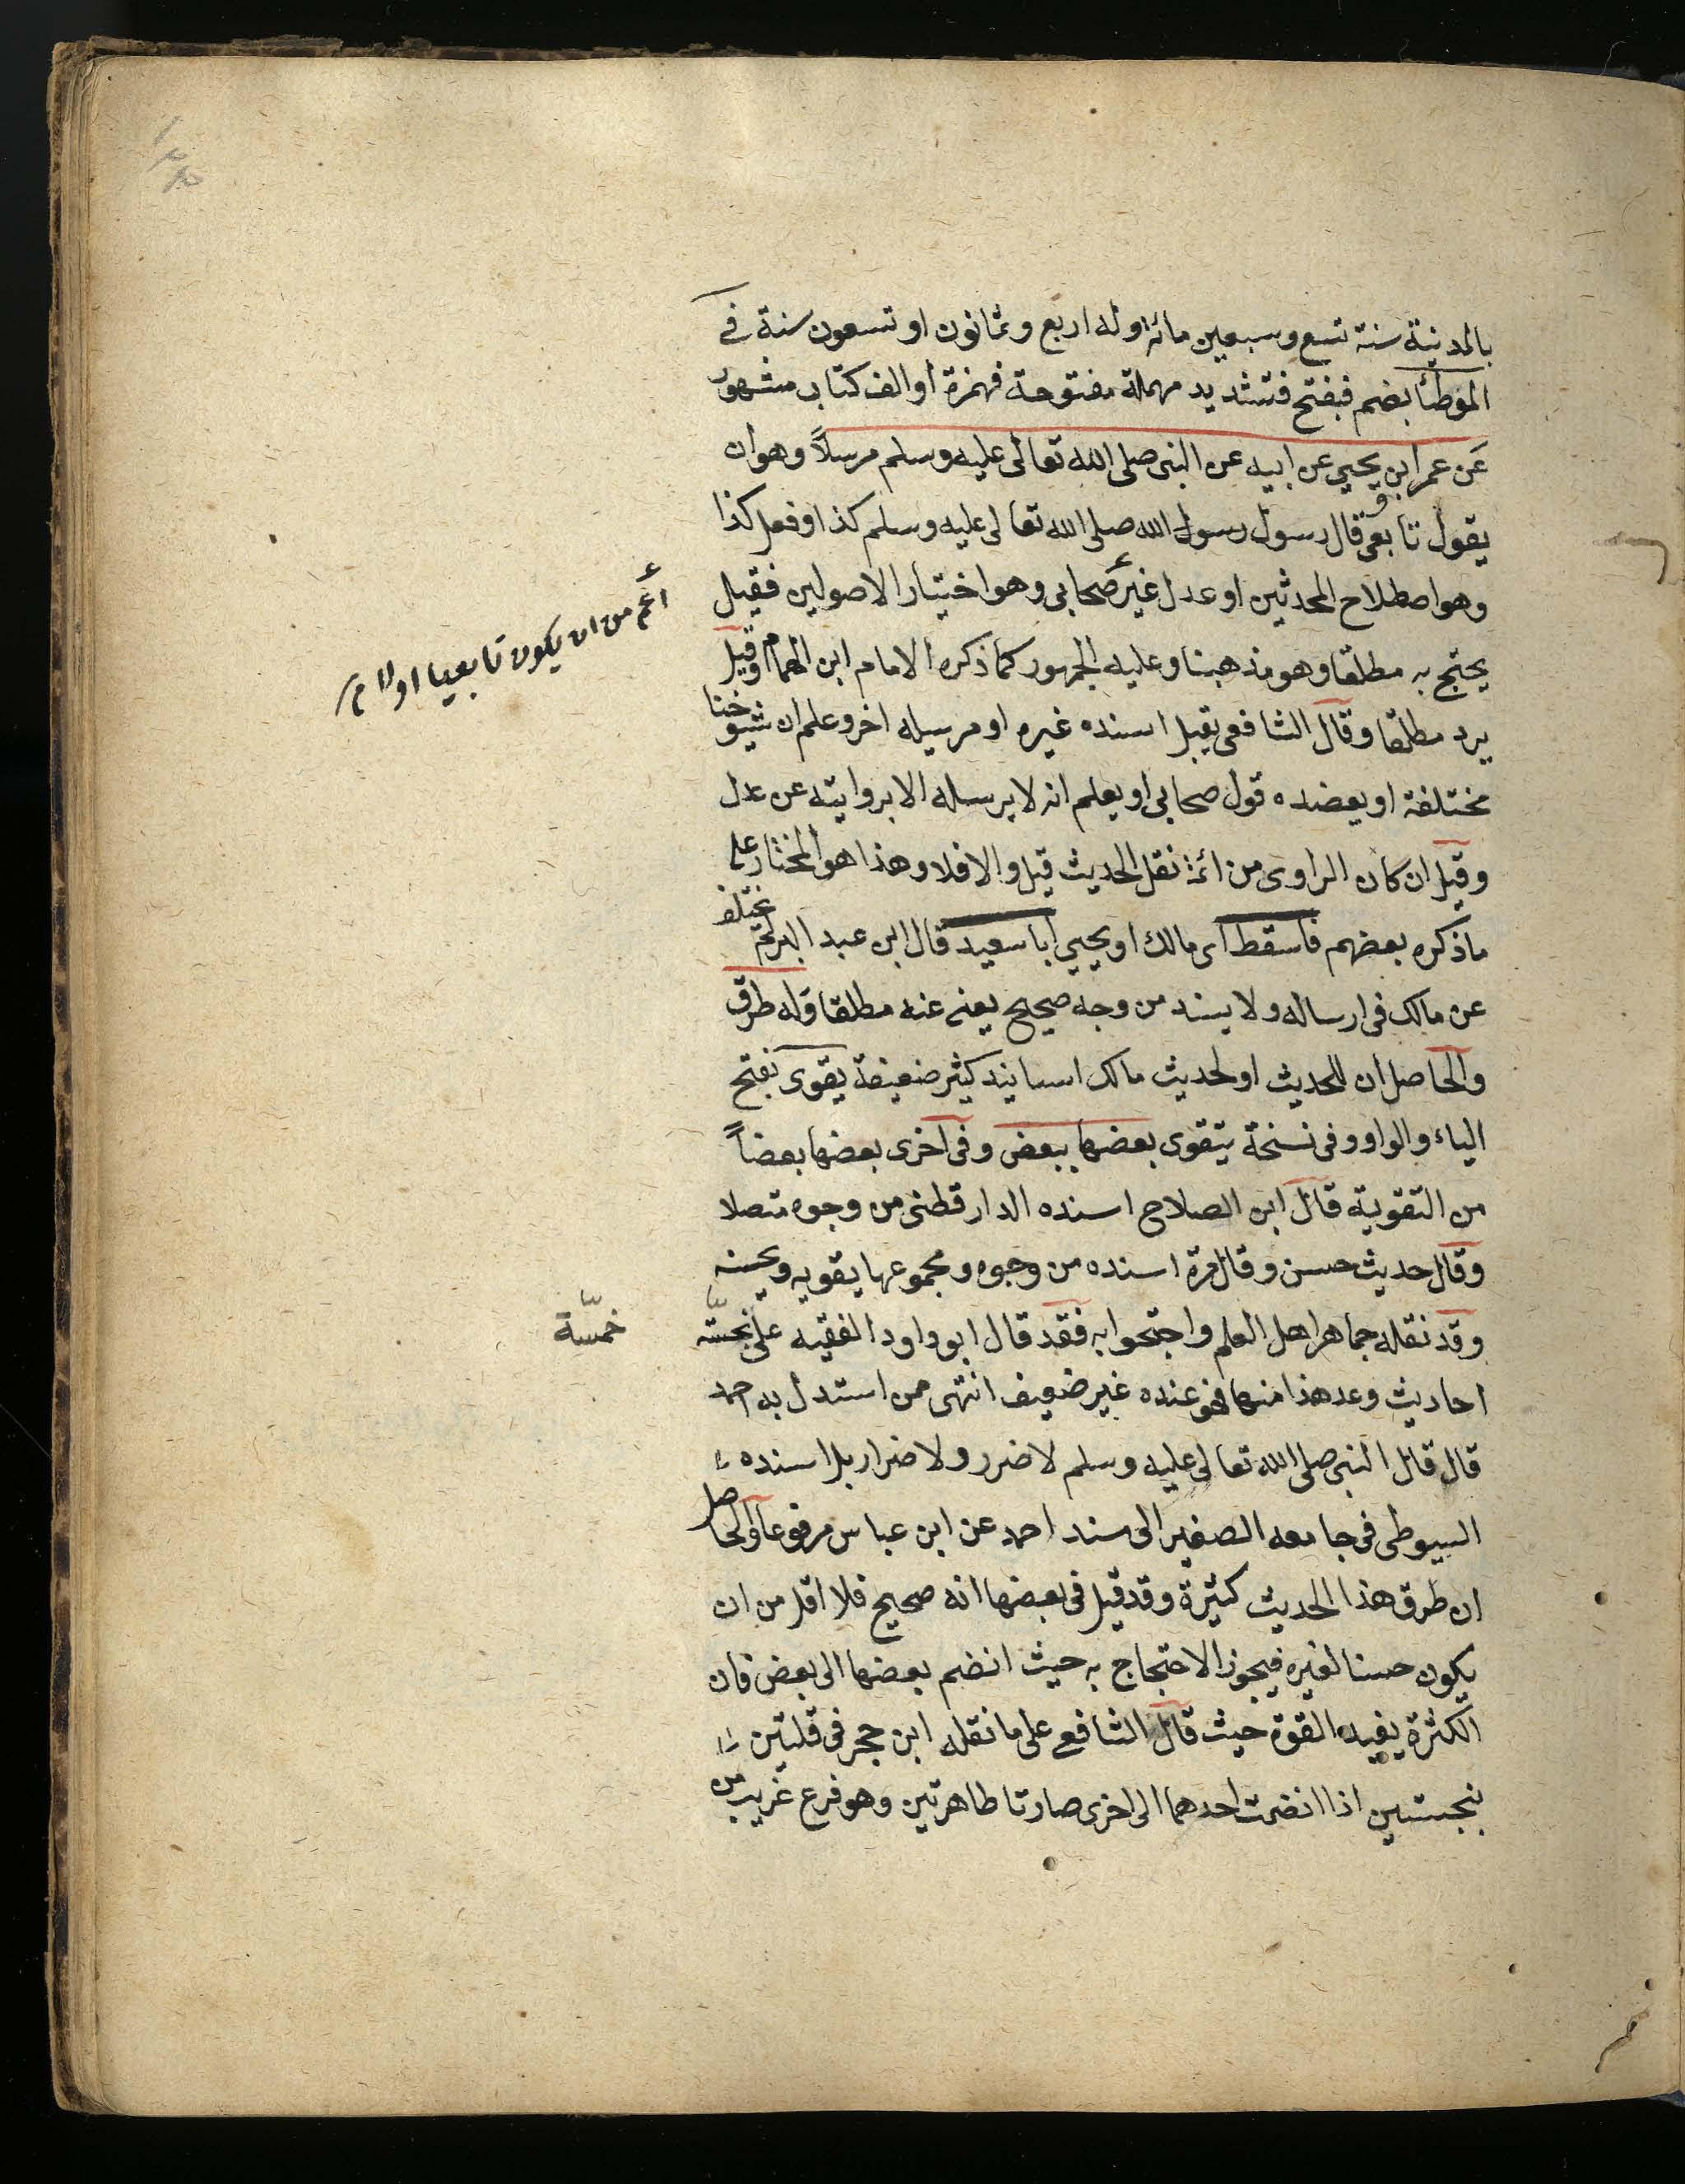 بالمدنية سنة تسع وسبعين مائة وله اربع وثمانون او تسعون سنة في
الموطأ بضم فبفتح فتشديد مهملة مفتوحة فهمزة او الف كتاب مشهور
عن عمر ابن يحيي عن ابيه عن النبى صلى الله تعالى عليه وسلم مرسلاً وهو ان
يقول تابعى قال رسول رسول الله صلى الله تعالى عليه وسلم كذا او فعل كذا
وهو اصطلاح المحدثين او عدل غير صحابى وهو اختيار الاصولين فقيل
اعم من ان يكون تابعيا اولا م
يحتج به مطلقا وهو مذهبنا وعليه الجمهور كما ذكره الامام ابن الهمام وقيل
يرد مطلقا وقال الشافعى يقبل اسنده غيره او مرسله اخر وعلم ان شيوخنا
مختلفة او يعضده قول صحابى او يعلم انه لا يرسله الا بروايته عن عدل
وقيل ان كان الراوى من ائمة نقل الحديث قبل والا فلا وهذا هو المختار على
ما ذكره بعضهم فاسقط اى مالك او يحيي ابا سعيد قال ابن عبد البر لم يختلف
عن مالك فى ارساله ولا يسند من وجه صحيح يعنى عنه مطلقا وله طرق
والحاصل ان للحديث او لحديث مالك اسانيد كثير ضعيفة يقوى بفتح
الياء والواو وفى نسخة يتقوى بعضها ببعض وفى اخرى بعضها بعضاً
من التقوية قال ابن الصلاح اسنده الدارقطنى من وجوه متصلا
وقال حديث حسن وقال مرة اسنده من وجوه ومجموعها يقويه ويحسنه
وقد نقله جماهر اهل العلم واحتجوا به فقد قال ابو داود الفقيه على نجسّه
خمسّة
احاديث وعد هذا منها فهو عنده غير ضعيف انتهى ممن استدل به احمد
قال قال النبى صلى الله تعالى عليه وسلم لا ضرر ولا ضرار بل اسنده
السيوطى فى جامعه الصغير الى سند احمد عن ابن عباس مرفوعا والحاصل
ان طرق هذا الحديث كثيرة وقد قيل فى بعضها انه صحيح فلا اقل من ان
يكون حسنا لغيره فيجوز الاحتجاج به حيث انضم بعضها الى بعض فان
الكثرة يفيد القوة حيث قال الشافع على ما نقله ابن حجر فى قلتين
نجستين اذا انضمت احدهما الى اخرى صارتا طاهرتين وهو فرع غريب من